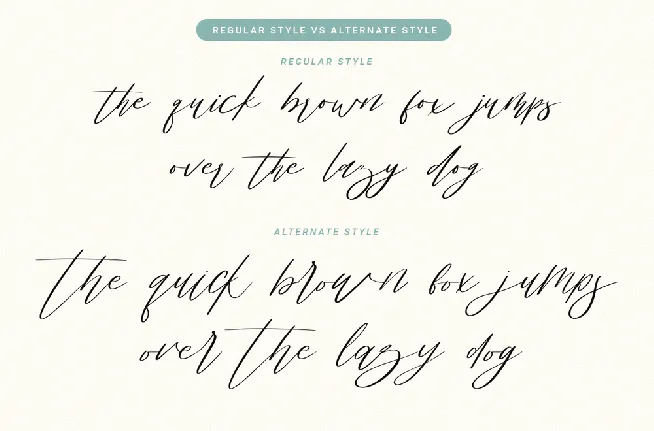 REGULAR STYLE VS ALTERNATE STYLE
REGULAR STYLE
the quick brown fox jumps
over the lazy dog
ALTERNATE STYLE
the quick brown fox jumps
over the lazy dog